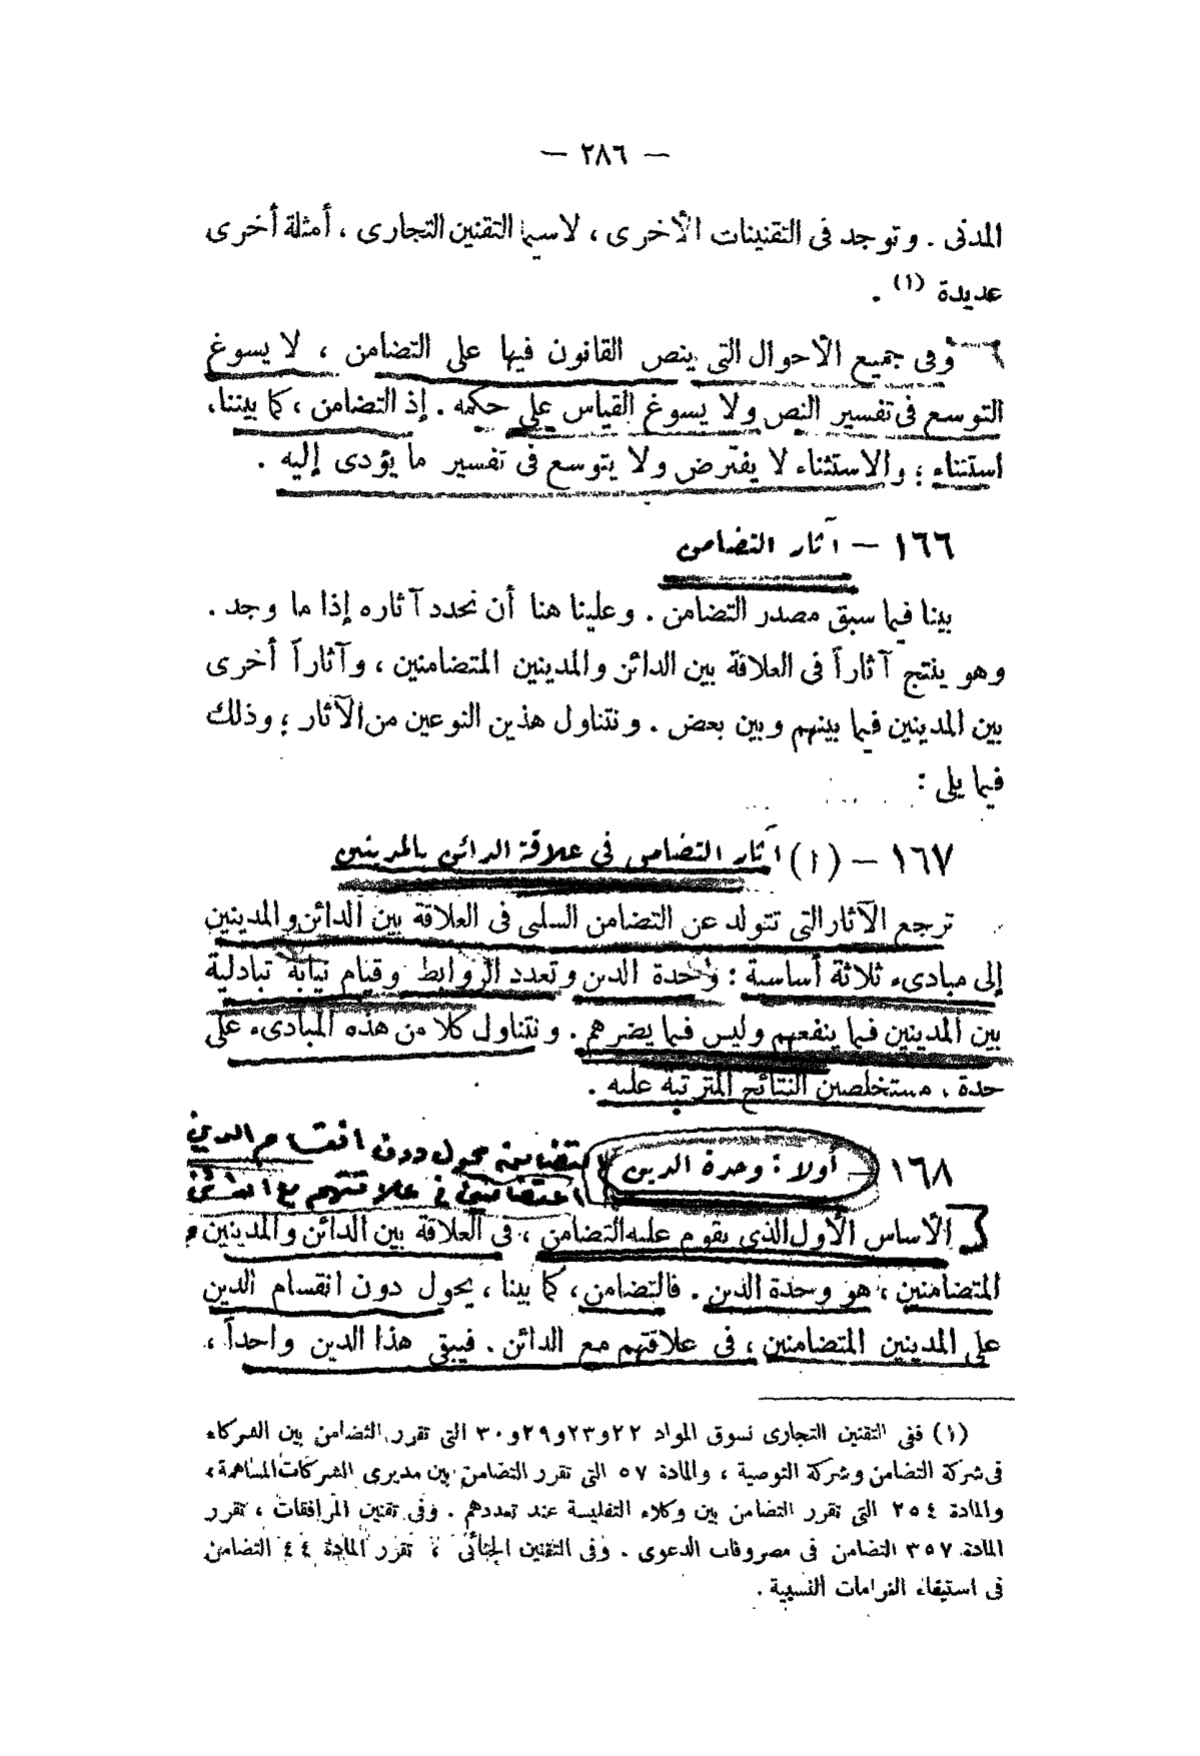 — ٢٨٦ —
المدنى . وتوجد فى التقنينات الأخرى ، لاسيما التقنين التجارى ، أمثلة أخرى
عديدة (١) .
وفى جميع الأحوال التى ينص القانون فيها على التضامن ، لا يسوغ
التوسع فى تفسير النص ولا يسوغ القياس على حكمه . إذ التضامن ، كما بيننا ،
استثناء ؛ والاستثناء لا يفترض ولا يتوسع فى تفسير ما يؤدى إليه .
١٦٦ — آثار التضامن
بينا فيما سبق مصدر التضامن . وعلينا هنا أن نحدد آثاره إذا ما وجد .
وهو ينتج آثاراً فى العلاقة بين الدائن والمدينين المتضامنين ، وآثاراً أخرى
بين المدينين فيما بينهم وبين بعض . ونتناول هذين النوعين من الآثار ؛ وذلك
فيما يلى :
١٦٧ — (١) آثار التضامن فى علاقة الدائن بالمدينين
ترجع الآثار التى تتولد عن التضامن السلبى فى العلاقة بين الدائن والمدينين
إلى مبادىء ثلاثة أساسية : وحدة الدين وتعدد الروابط وقيام نيابة تبادلية
بين المدينين فيما ينفعهم وليس فيما يضرهم . ونتناول كلا من هذه المبادىء على
حدة ، مستخلصين النتائج المترتبة عليه .
١٦٨ — أولا : وحدة الدين
يحول دون انقسام الدين
فى علاقتهم مع الدائن
الأساس الأول الذى يقوم عليه التضامن ، فى العلاقة بين الدائن والمدينين
المتضامنين ، هو وحدة الدين . فالتضامن ، كما بينا ، يحول دون انقسام الدين
على المدينين المتضامنين ، فى علاقتهم مع الدائن . فيبقى هذا الدين واحداً ،
(١) ففى التقنين التجارى نسوق المواد ٢٢ و٢٣ و٢٩ و٣٠ التى تقرر التضامن بين الشركاء
فى شركة التضامن وشركة التوصية ، والمادة ٥٧ التى تقرر التضامن بين مديرى الشركات المساهمة ،
والمادة ٢٥٤ التى تقرر التضامن بين وكلاء التفليسة عند تعددهم . وفى تقنين المرافعات ، تقرر
المادة ٣٥٧ التضامن فى مصروفات الدعوى . وفى التقنين الجنائى ، تقرر المادة ٤٤ التضامن
فى استيفاء الغرامات النسبية .